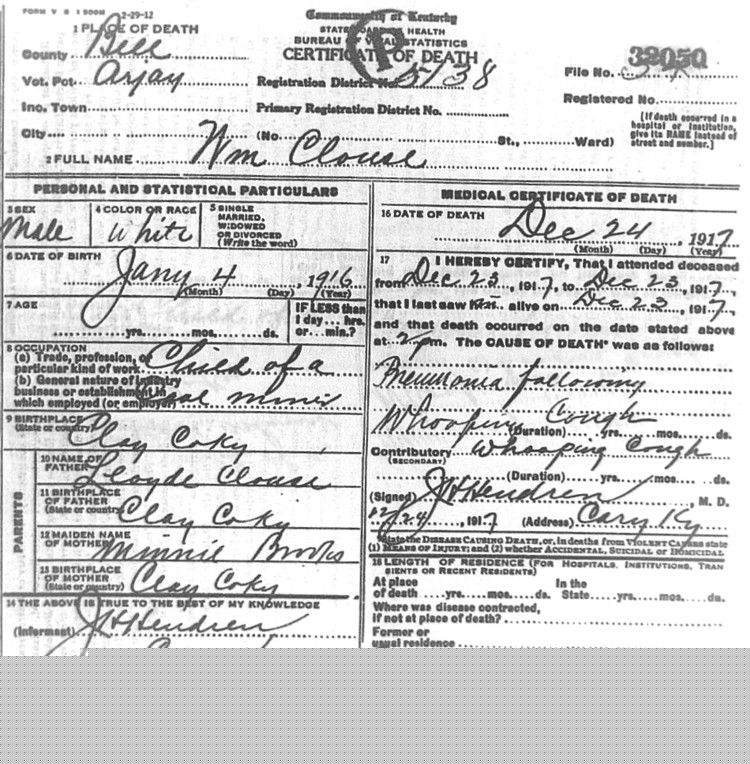 FORM V S 1 500M 2-29-12
Commonwealth of Kentucky
STATE BOARD OF HEALTH
BUREAU OF VITAL STATISTICS
CERTIFICATE OF DEATH
1 PLACE OF DEATH
County Bell
Vot. Pct. Arjay
Inc. Town
City
Registration District No. 5138
Primary Registration District No.
File No. 32050
Registered No.
[If death occurred in a
hospital or institution,
give its NAME instead of
street and number.]
(No. St., Ward)
2 FULL NAME Wm Clouse
PERSONAL AND STATISTICAL PARTICULARS
3 SEX
Male
4 COLOR OR RACE
White
5 SINGLE
MARRIED,
WIDOWED
OR DIVORCED
(Write the word)
6 DATE OF BIRTH
Jany 4, 1916
(Month) (Day) (Year)
7 AGE
yrs. mos. ds.
IF LESS than
1 day... hrs.
or... min.?
8 OCCUPATION
(a) Trade, profession, or
particular kind of work Child of a
(b) General nature of industry
business or establishment in
which employed (or employer) coal miner
9 BIRTHPLACE
(State or country) Clay Co Ky
PARENTS
10 NAME OF
FATHER Lloyde Clouse
11 BIRTHPLACE
OF FATHER
(State or country) Clay Co Ky
12 MAIDEN NAME
OF MOTHER Minnie Brooks
13 BIRTHPLACE
OF MOTHER
(State or country) Clay Co Ky
14 THE ABOVE IS TRUE TO THE BEST OF MY KNOWLEDGE
(Informant) J H Hendren
MEDICAL CERTIFICATE OF DEATH
16 DATE OF DEATH
Dec 24, 1917
(Month) (Day) (Year)
17 I HEREBY CERTIFY, That I attended deceased
from Dec 23, 1917, to Dec 23, 1917,
that I last saw him alive on Dec 23, 1917
and that death occurred on the date stated above
at 2 pm. The CAUSE OF DEATH* was as follows:
Pneumonia following
Whooping Cough
(Duration) yrs. mos. ds.
Contributory Whooping Cough
(SECONDARY)
(Duration) yrs. mos. ds.
(Signed) J H Hendren, M. D.
12/24, 1917 (Address) Cary Ky
*State the DISEASE CAUSING DEATH, or, in deaths from VIOLENT CAUSES state
(1) MEANS OF INJURY; and (2) whether ACCIDENTAL, SUICIDAL or HOMICIDAL
18 LENGTH OF RESIDENCE (FOR HOSPITALS, INSTITUTIONS, TRAN
SIENTS OR RECENT RESIDENTS)
At place In the
of death yrs. mos. ds. State yrs. mos. ds.
Where was disease contracted,
if not at place of death?
Former or
usual residence